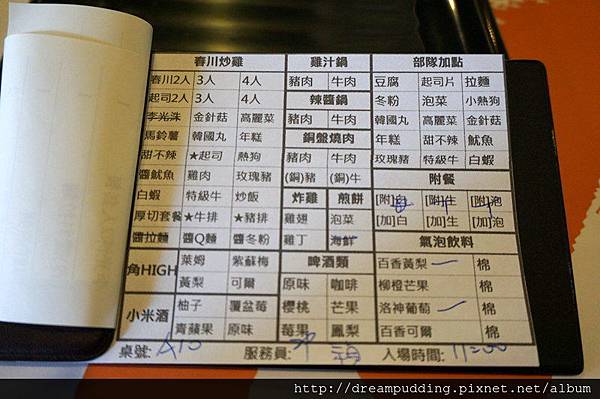 春川炒雞 雞汁鍋 部隊加點
春川2人 3人 4人 豬肉 牛肉 豆腐 起司片 拉麵
起司2人 3人 4人 辣醬鍋 冬粉 泡菜 小熱狗
李光洙 金針菇 高麗菜 豬肉 牛肉 韓國丸 高麗菜 金針菇
馬鈴薯 韓國丸 年糕 銅盤燒肉 年糕 甜不辣 魷魚
甜不辣 ★起司 熱狗 豬肉 牛肉 玫瑰豬 特級牛 白蝦
醬魷魚 雞肉 玫瑰豬 (銅)豬 (銅)牛 附餐
白蝦 特級牛 炒飯 炸雞 煎餅 [附]白 [附]生 [附]泡
厚切套餐 ★牛排 ★豬排 雞翅 泡菜 [加]白 [加]生 [加]泡
醬拉麵 醬Q麵 醬冬粉 雞丁 海鮮 氣泡飲料
角HIGH 萊姆 紫蘇梅 啤酒類 百香黃梨 棉
黃梨 可爾 原味 咖啡 柳橙芒果 棉
小米酒 柚子 覆盆莓 櫻桃 芒果 洛神葡萄 棉
青蘋果 原味 莓果 鳳梨 百香可爾 棉
桌號: A10 服務員: 入場時間: 11:00
http://dreampudding.pixnet.net/album